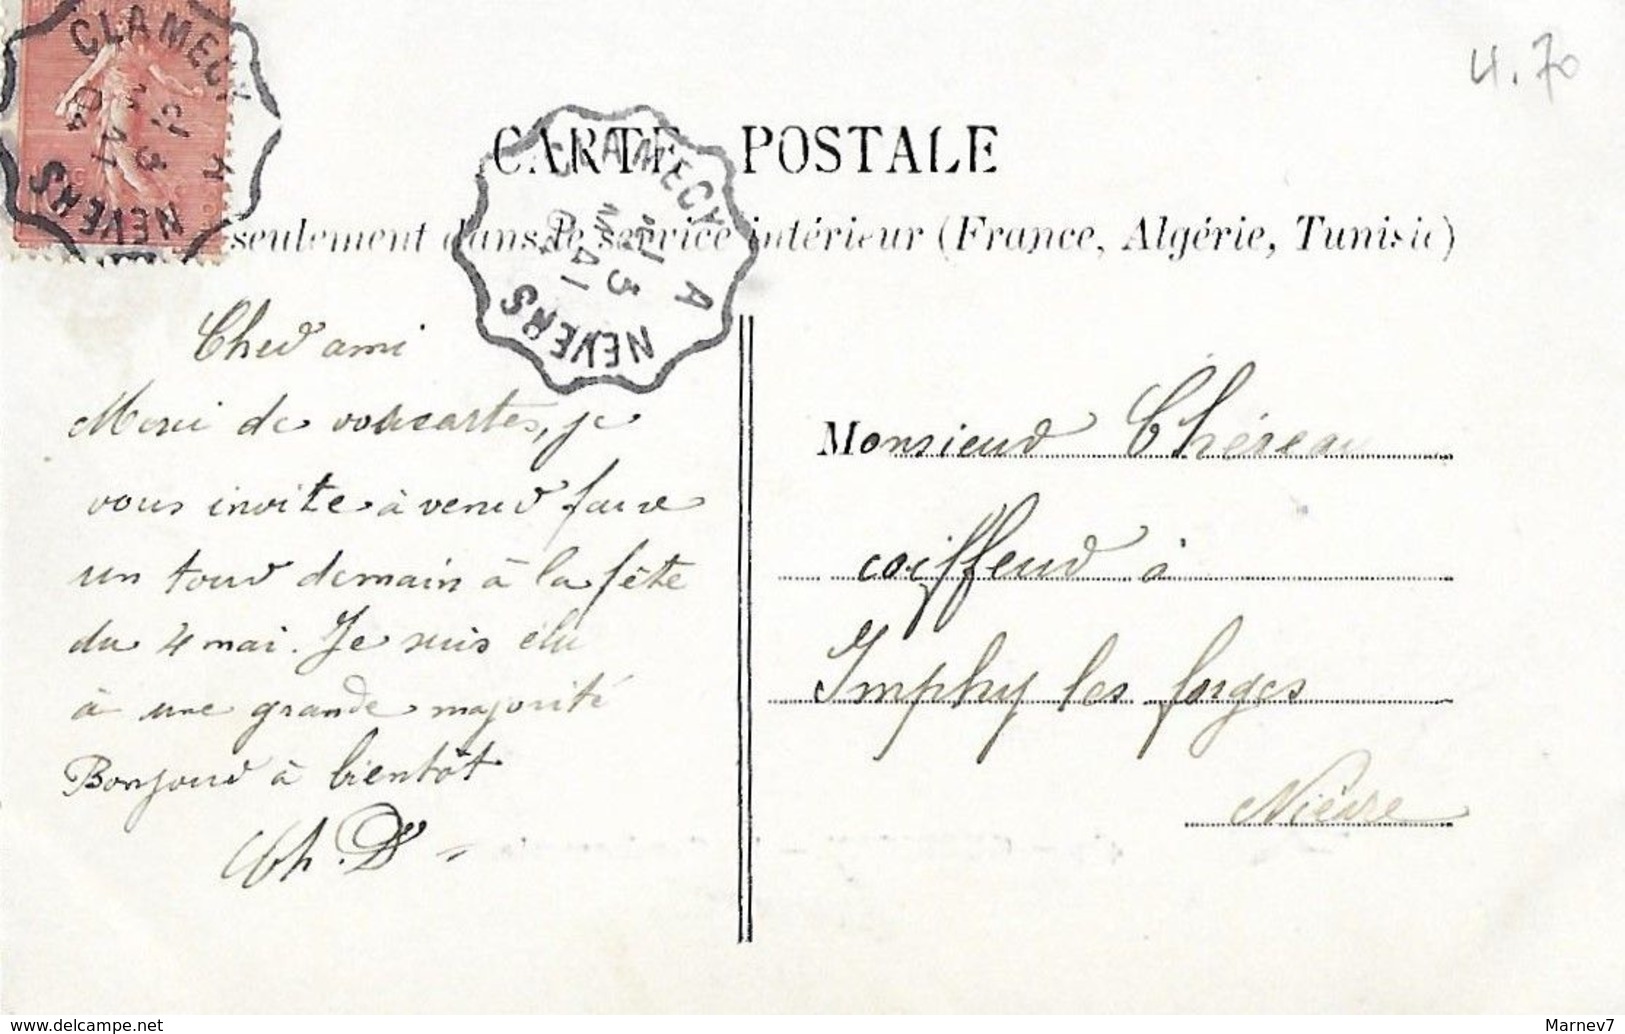 4.70
CLAMECY A NEVERS
3 MAI
04
CARTE POSTALE
CLAMECY A NEVERS
3 MAI
04
seulement dans le service intérieur (France, Algérie, Tunisie)
Cher ami
Merci de vos cartes, je
vous invite à venir faire
un tour demain à la fête
du 4 mai. Je suis élu
à une grande majorité
Bonjour à bientôt
Ch. D
Monsieur Chéreau
coiffeur à
Imphy les forges
Nièvre
www.delcampe.net
Marnev7